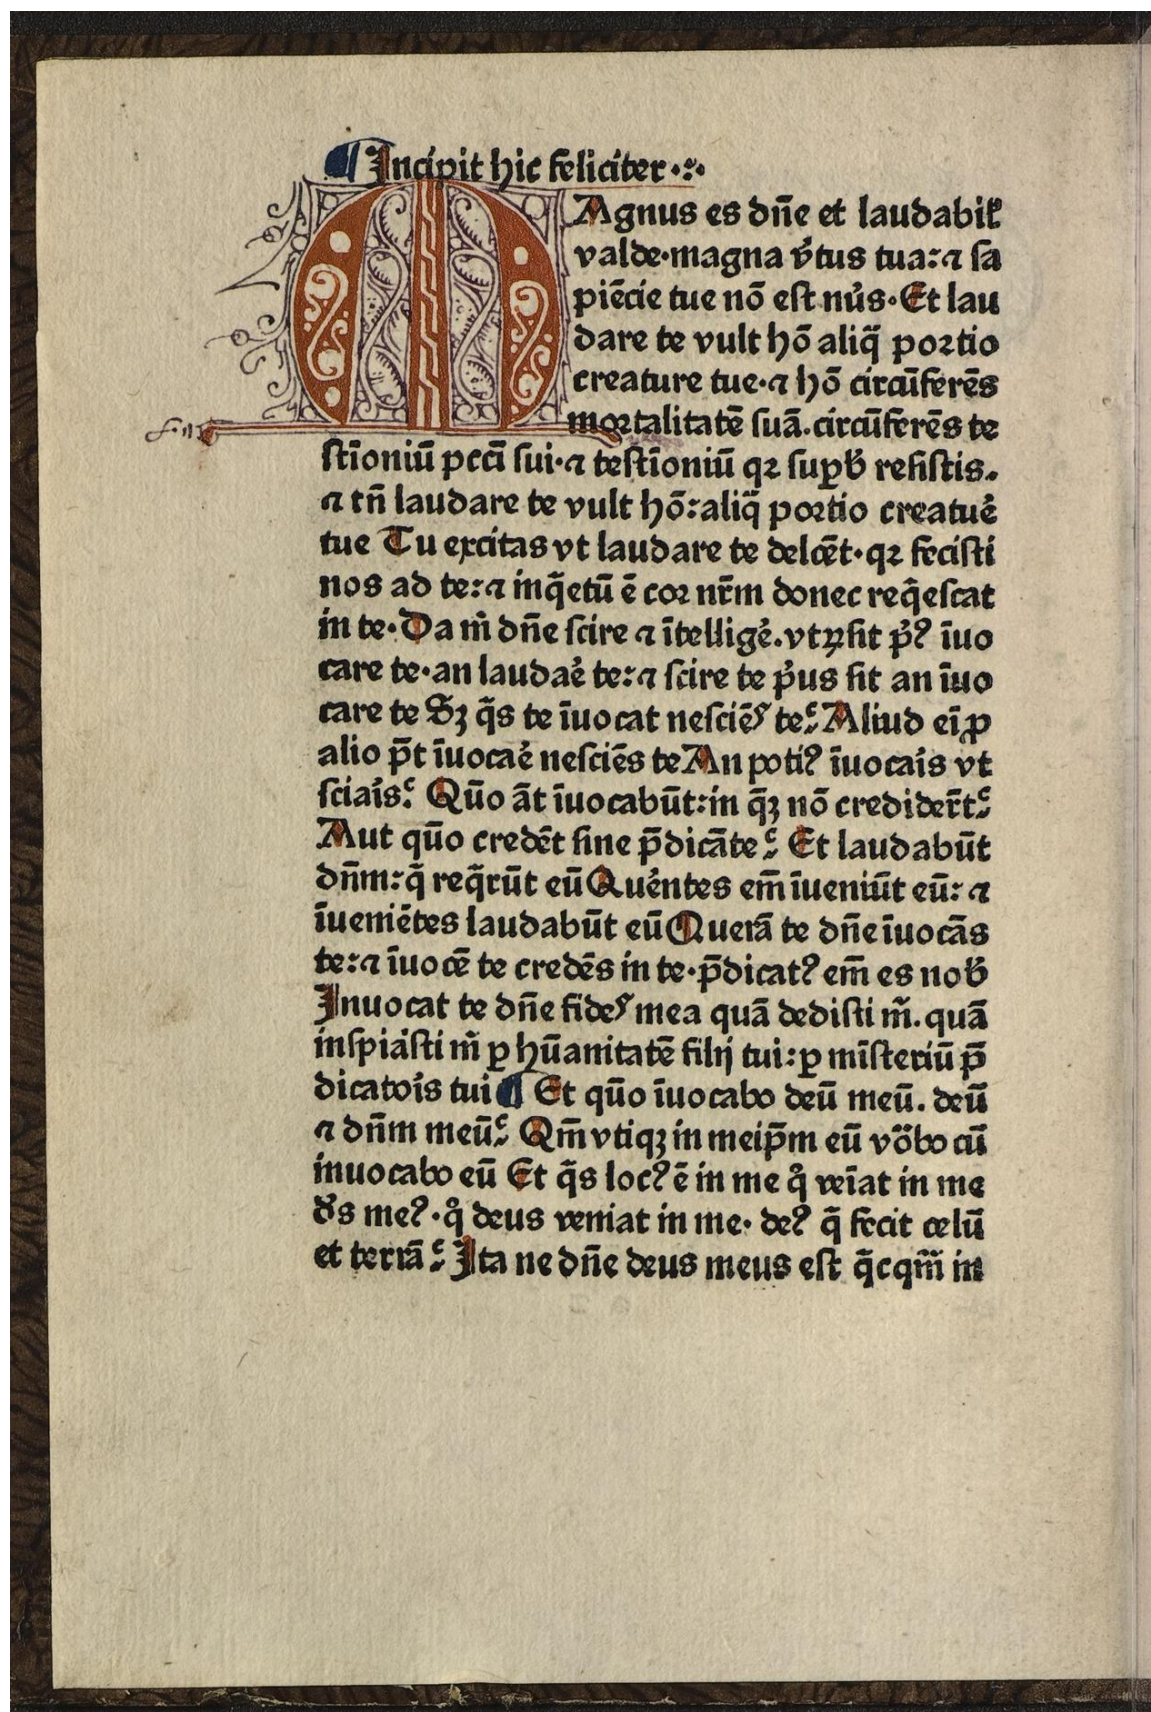 ¶ Incipit hic feliciter ·:·
MAgnus es dn̄e et laudabil̕
valde·magna v̕tus tua:⁊ sa
piēcie tue nō est nu̕s·Et lau
dare te vult hō aliq̄ portio
creature tue·⁊ hō circūferēs
mortalitatē suā.circūferēs te
stīoniū pctī sui·⁊ testīoniū qꝛ suꝑb̕ resistis.
⁊ tn̄ laudare te vult hō:aliq̄ portio creatue̕
tue Tu excitas vt laudare te delcēt·qꝛ fecisti
nos ad te:⁊ inq̄etū ē cor nr̄m donec req̄escat
in te·Da m̄ dn̄e scire ⁊ ītellige̕.vtꝝsit p̕ꝰ īuo
care te·an laudae̕ te:⁊ scire te p̕us sit an īuo
care te Sꝫ q̄s te īuocat nesciēs te? Aliud eī ꝓ
alio p̄t īuocae̕ nesciēs te An potiꝰ īuocai̕s vt
sciai̕s? Qūo āt īuocabūt:in q̄ꝫ nō credider̄t?
Aut qūo credēt sine p̄dicāte? Et laudabūt
dn̄m:q̄ req̄rūt eū Que̕ntes em̄ īueniūt eū:⁊
īueniētes laudabūt eū Querā te dn̄e īuocās
te:⁊ īuocē te credēs in te·p̄dicatꝰ em̄ es nob̕
Inuocat te dn̄e fides mea quā dedisti m̄.quā
inspia̕sti m̄ ꝑ hūanitatē filij tui:ꝑ mīsteriū p̄
dicatoi̕s tui ¶ Et qūo īuocabo deū meū. deū
⁊ dn̄m meū? Qm̄ vtiqꝫ in meip̄m eū vo̕bo cū
inuocabo eū Et q̄s locꝰ ē in me qͦ veīat in me
d̕s meꝰ·qͦ deus veniat in me· deꝰ q̄ fecit celū
et terrā? Ita ne dn̄e deus meus est q̄cqm̄ in